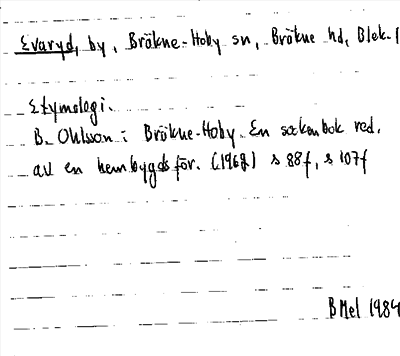 Evaryd, by, Bräkne-Hoby sn, Bräkne hd, Blek.
Etymologi.
B. Ohlsson i Bräkne-Hoby. En sockenbok red.
av en hembygdsför. (1962) s 88f, s 107f
B Mel 1984